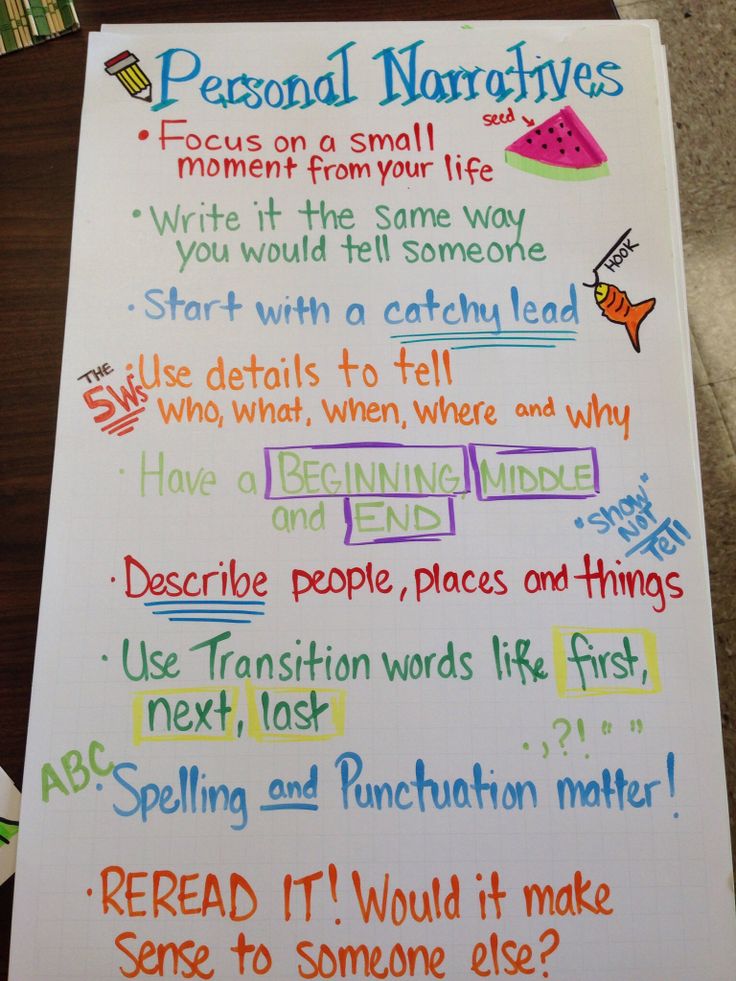 Personal Narratives
• Focus on a small
moment from your life
seed
• Write it the same way
you would tell someone
HOOK
• Start with a catchy lead
THE
5Ws
• Use details to tell
who, what, when, where and why
• Have a BEGINNING, MIDDLE
and END
"Show"
NOT
Tell
• Describe people, places and things
• Use Transition words like first,
next, last
. , ? ! " "
ABC
• Spelling and Punctuation matter!
• REREAD IT! Would it make
sense to someone else?